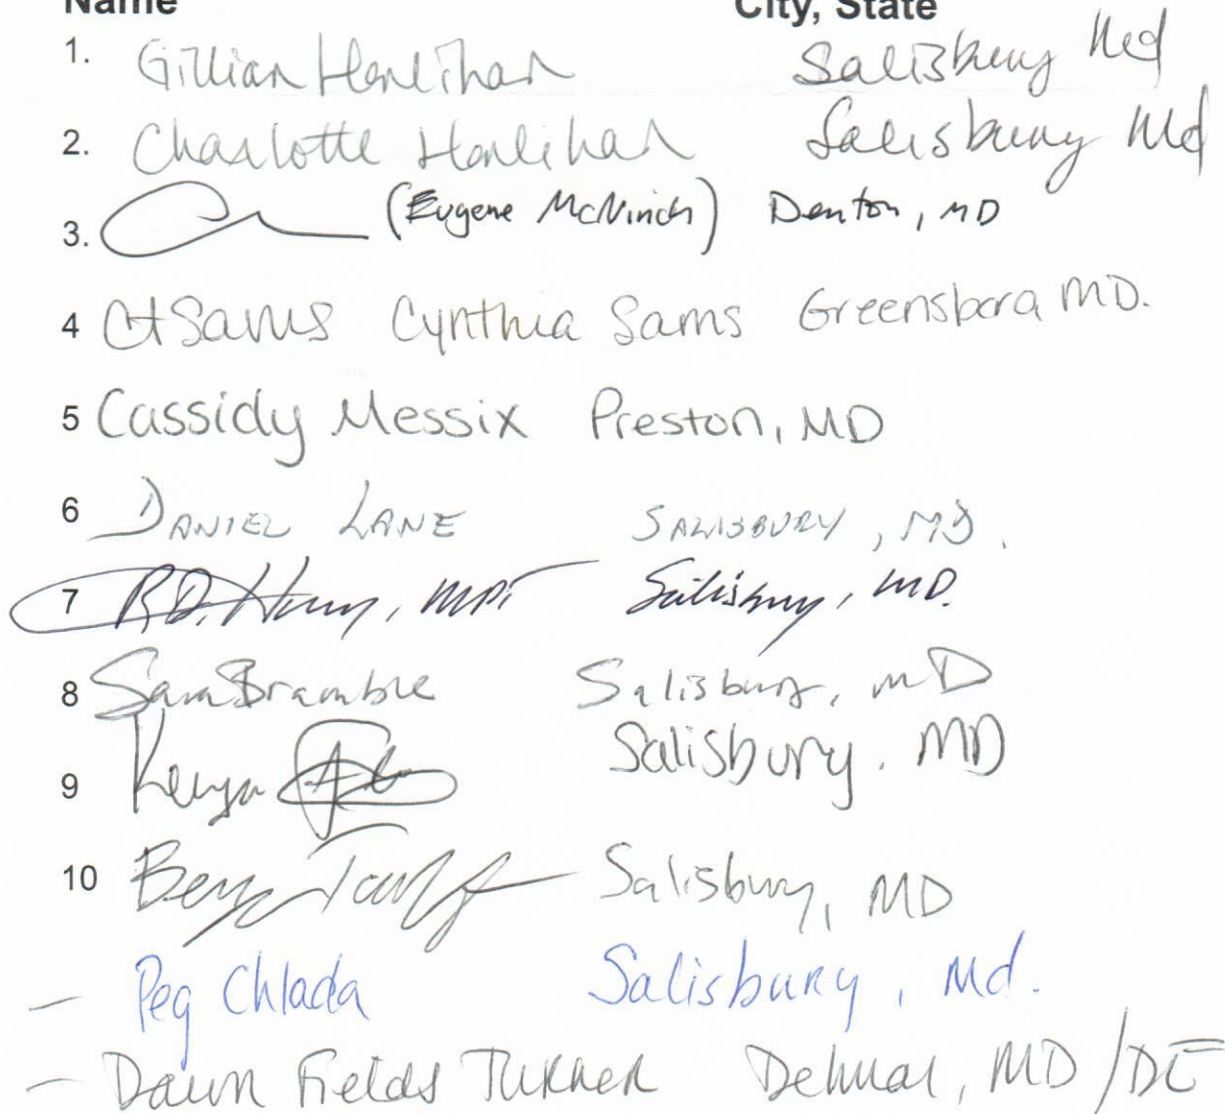 Name City, State
1. Gillian Honlihan Salisbury Md
2. Charlotte Honlihan Salisbury Md
3. (Eugene McNinch) Denton, MD
4 Cynthia Sams Greensbora MD.
5 Cassidy Messix Preston, MD
6 DANIEL LANE SALISBURY, MD.
7 R.D. Salisbury, MD.
8 Sam Bramble Salisbury, MD
9 Kenya Salisbury, MD
10 Salisbury, MD
- Peg Chlada Salisbury, Md.
- Dawn Fields Turner Delmar, MD/DE